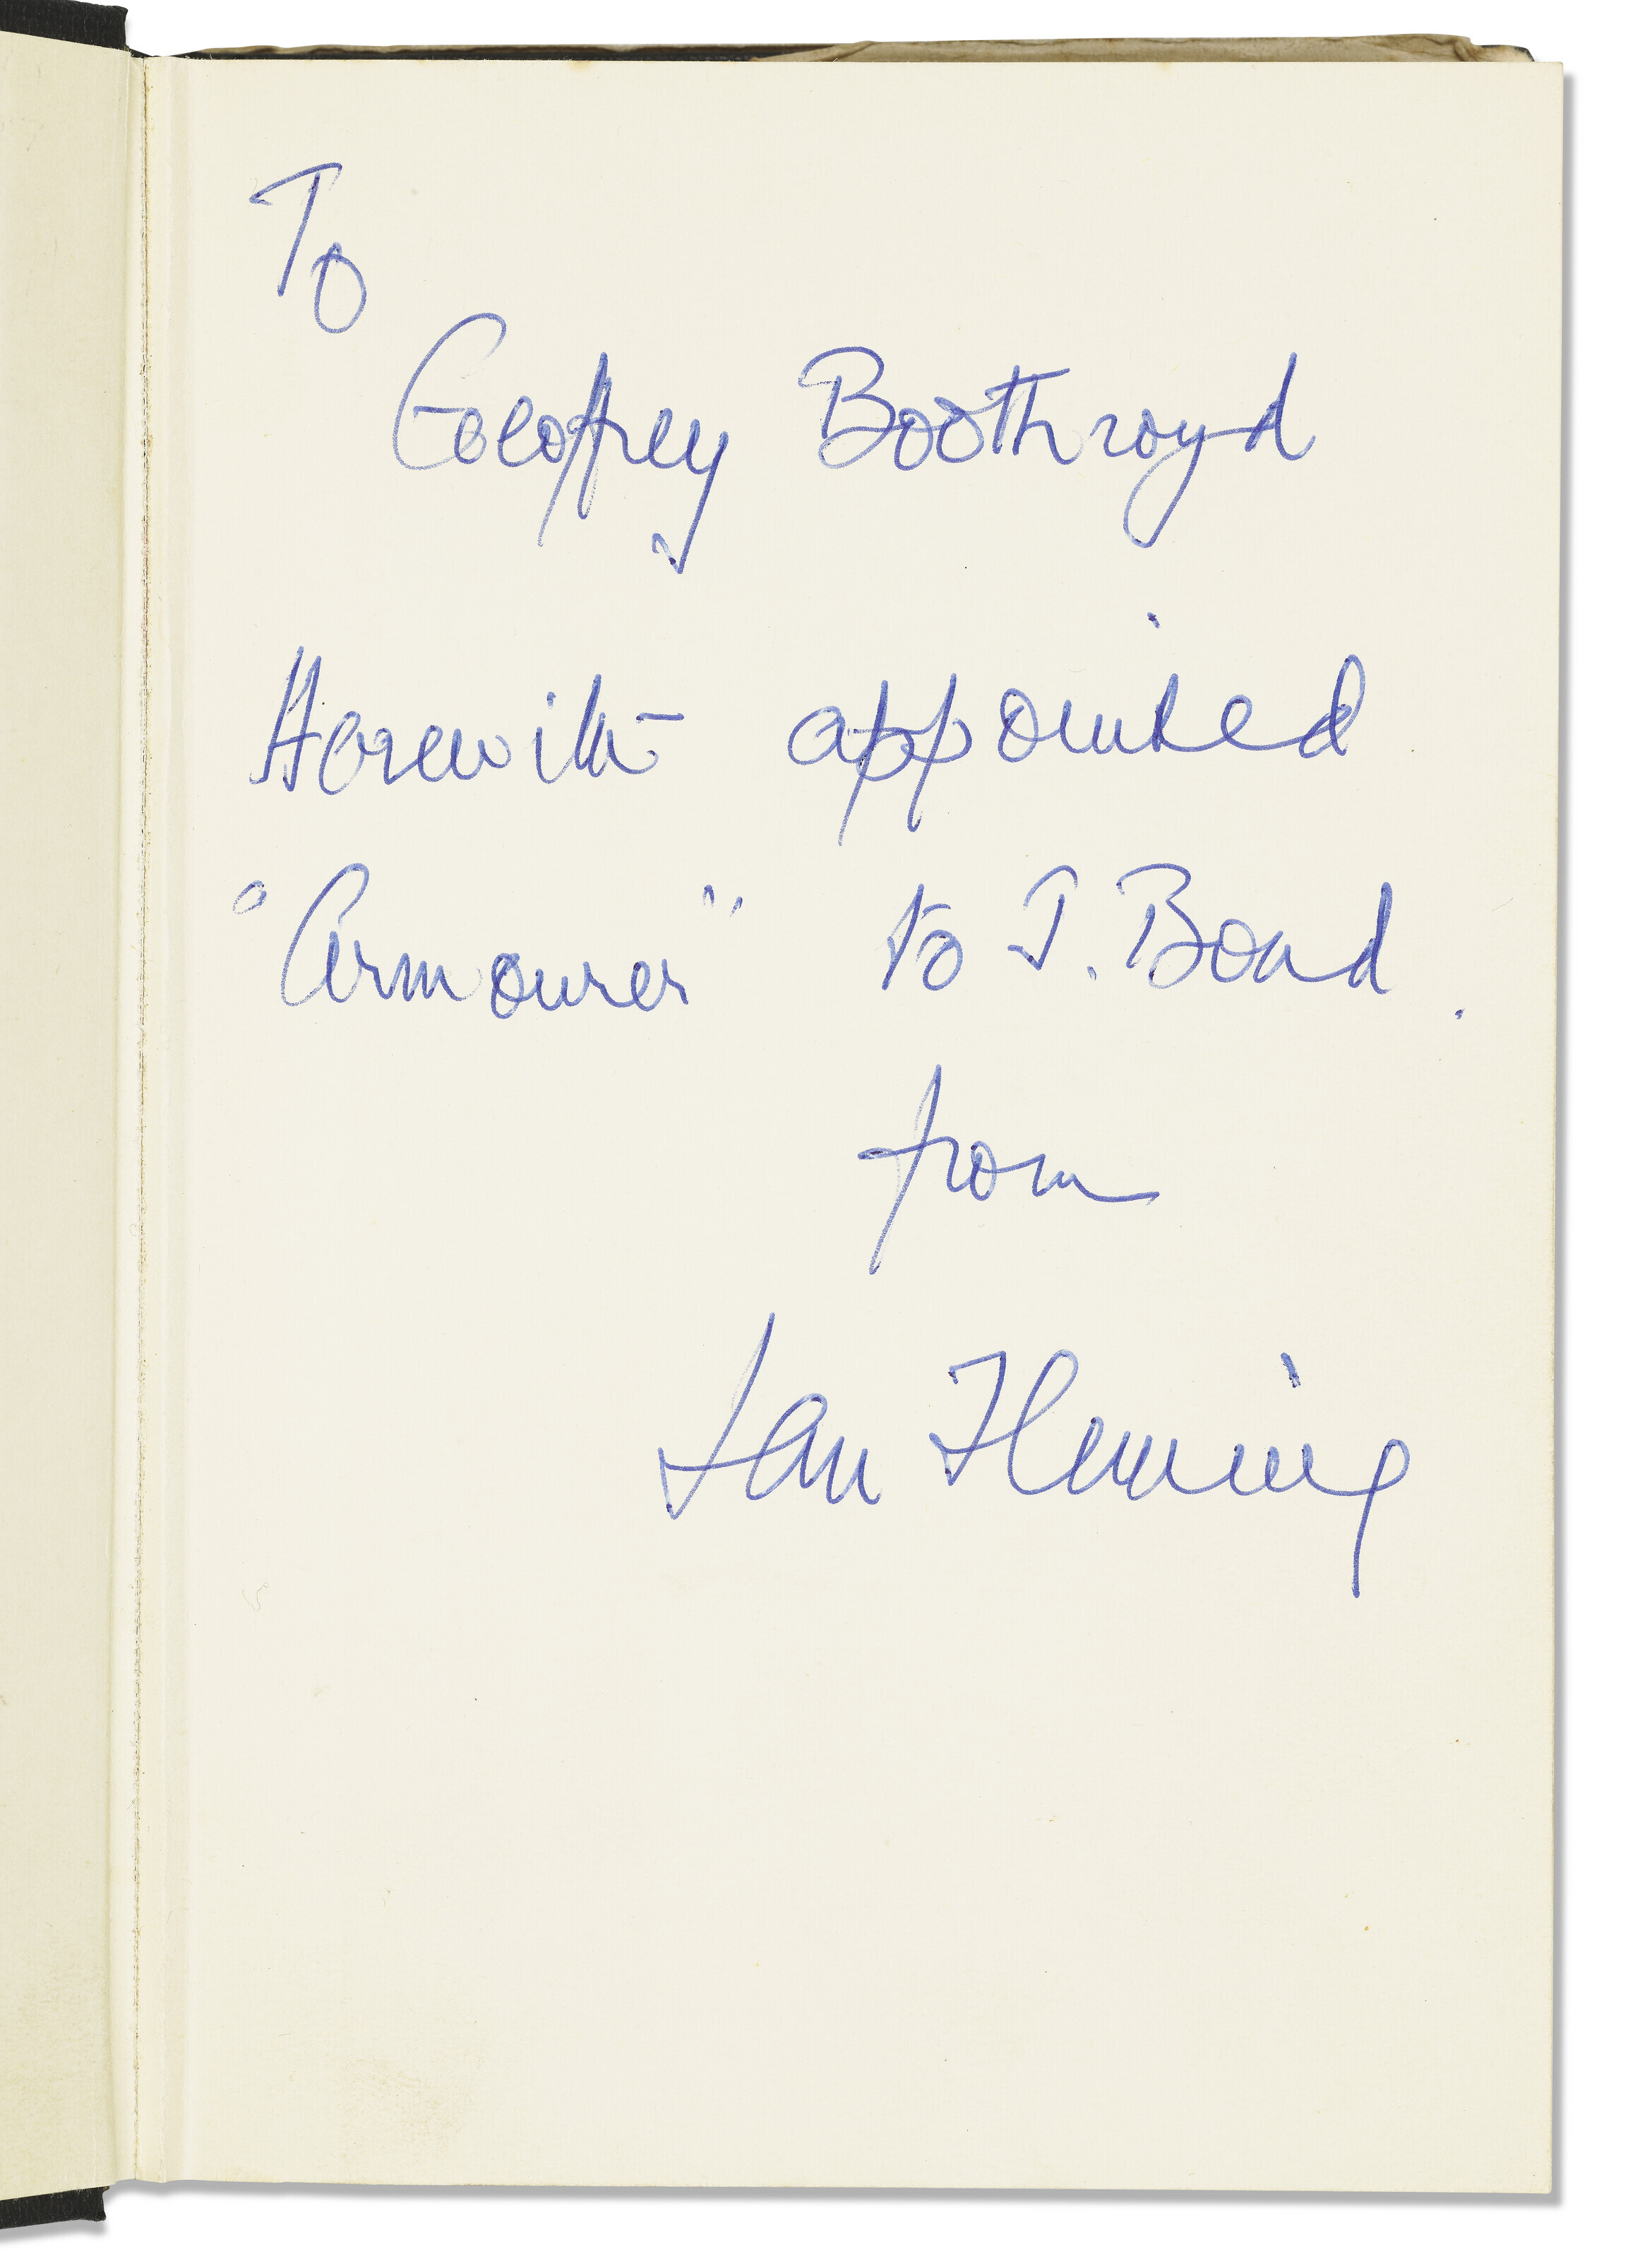 To
Geoffrey Boothroyd
Herewith appointed
"Armourer" to J. Bond.
from
Ian Fleming